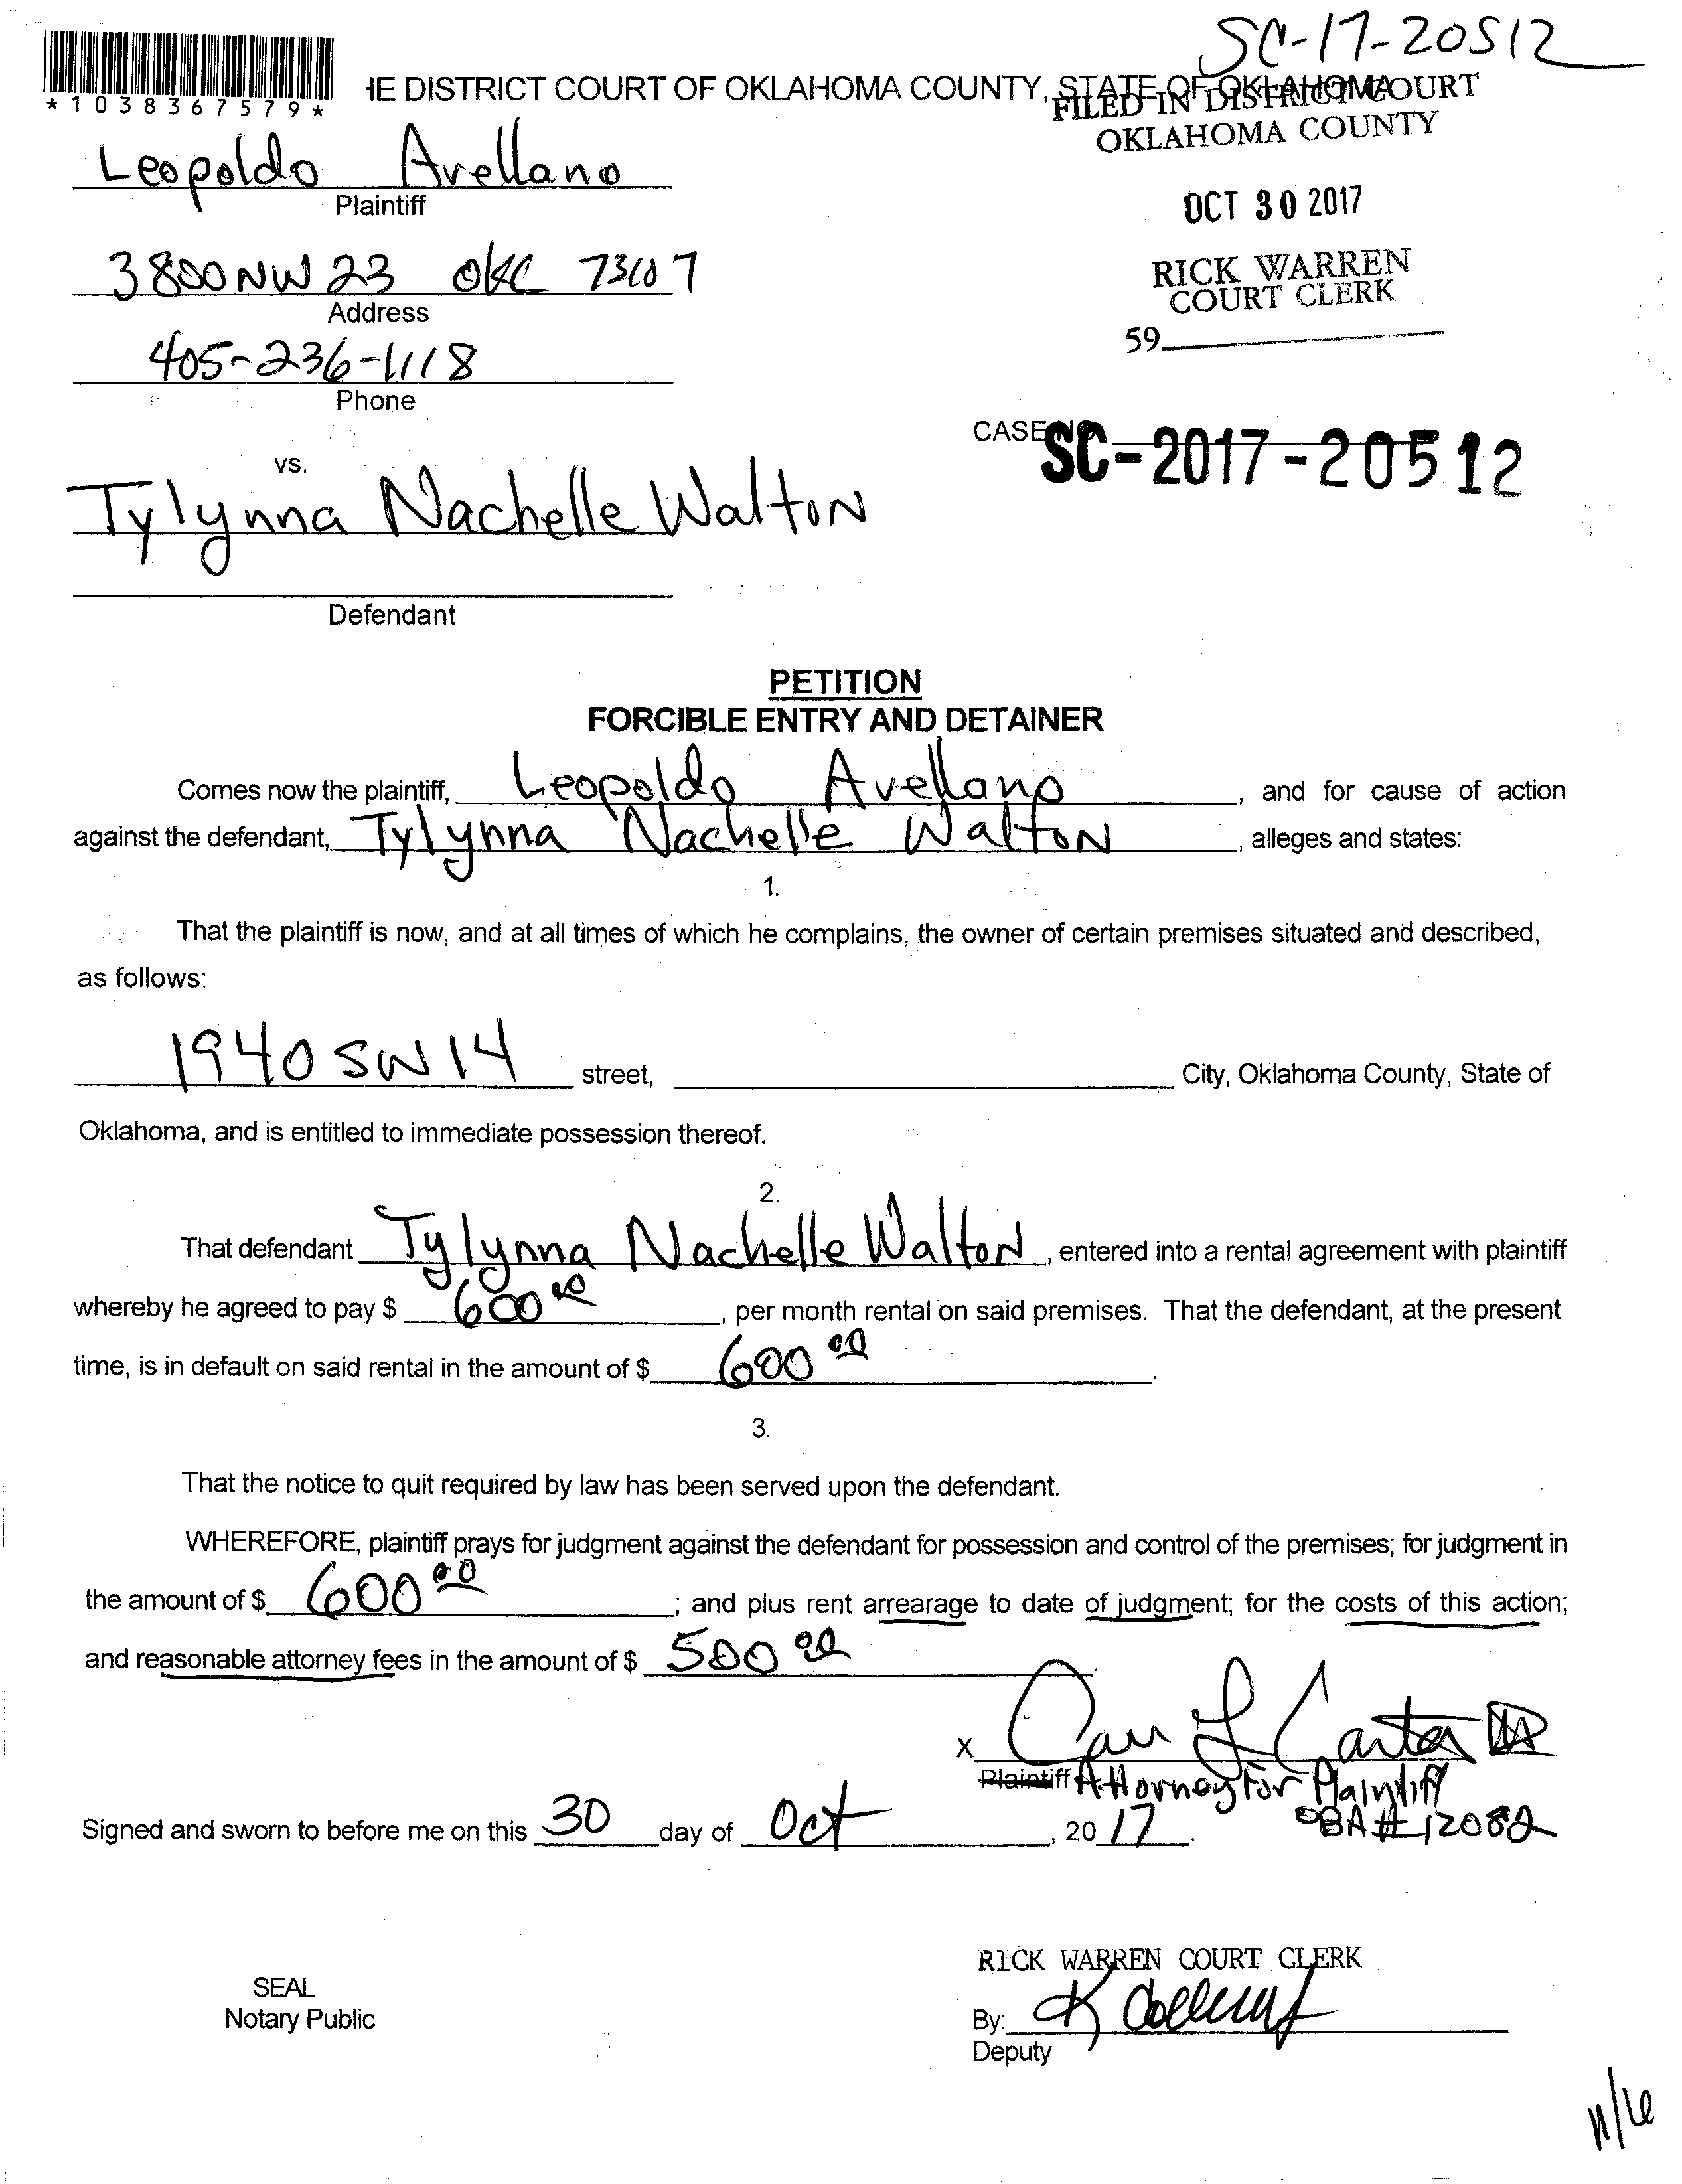 SC-17-20512
*1038367579*
IE DISTRICT COURT OF OKLAHOMA COUNTY, STATE OF OKLAHOMA
FILED IN DISTRICT COURT
OKLAHOMA COUNTY
OCT 30 2017
RICK WARREN
COURT CLERK
59
Leopoldo Avellano
Plaintiff
3800 NW 23 OKC 73107
Address
405-236-1118
Phone
CASE NO. SC-2017-20512
vs.
Tylynna Nachelle Walton
Defendant
PETITION
FORCIBLE ENTRY AND DETAINER
Comes now the plaintiff, Leopoldo Avellano, and for cause of action
against the defendant, Tylynna Nachelle Walton, alleges and states:
1.
That the plaintiff is now, and at all times of which he complains, the owner of certain premises situated and described,
as follows:
1940 SW 14 street, City, Oklahoma County, State of
Oklahoma, and is entitled to immediate possession thereof.
2.
That defendant Tylynna Nachelle Walton, entered into a rental agreement with plaintiff
whereby he agreed to pay $ 600 00, per month rental on said premises. That the defendant, at the present
time, is in default on said rental in the amount of $ 600 00.
3.
That the notice to quit required by law has been served upon the defendant.
WHEREFORE, plaintiff prays for judgment against the defendant for possession and control of the premises; for judgment in
the amount of $ 600 00; and plus rent arrearage to date of judgment; for the costs of this action;
and reasonable attorney fees in the amount of $ 500 00.
X Carr L Carter
Plaintiff Attorney for Plaintiff
OBA# 12082
Signed and sworn to before me on this 30 day of Oct, 20 17.
SEAL
Notary Public
RICK WARREN COURT CLERK
By:
Deputy
11/16